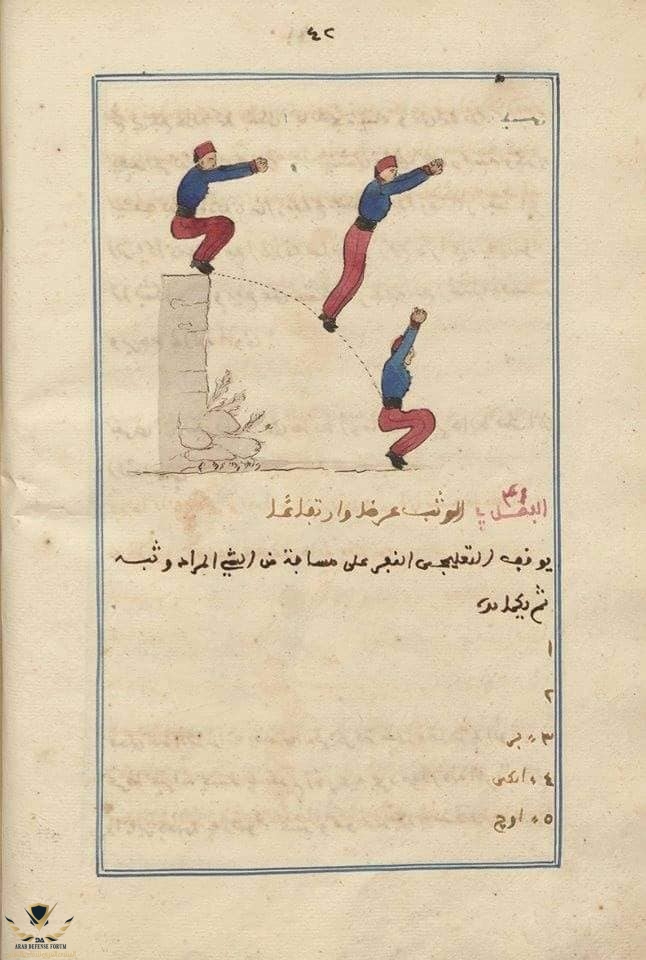 ٤٢
٣٤
الوثب عرضا وارتفاعا
يوقف التعليمجى النفر على مسافة من الشي المراد وثبه
ثم
١
٢
٣ بر
٤ ايكى
٥ اوچ
DA
ARAB DEFENSE FORUM